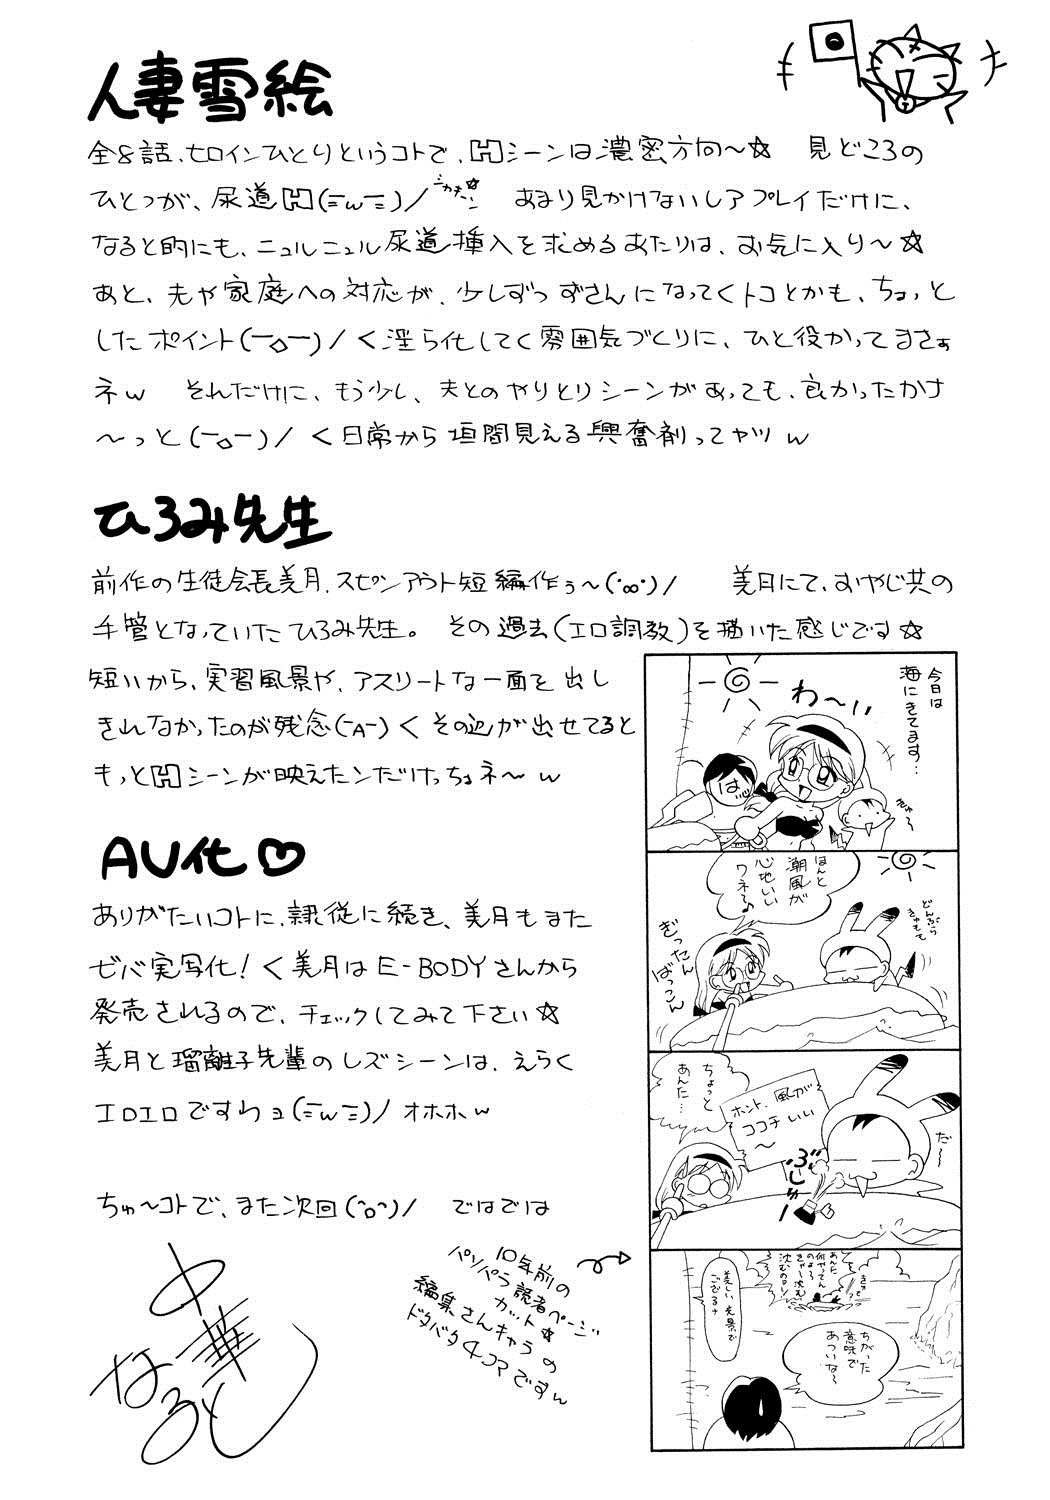 人妻雪絵
全8話、ヒロインひとりというコトで、Hシーンは濃密方向〜☆　見どころの
ひとつが、尿道H(ニwニ)/ジカキーン　あまり見かけないレアプレイだけに、
なると的にも、ニュルニュル尿道挿入を求めるあたりは、お気に入り〜☆
あと、夫や家庭への対応が、少しずつずさんになってくトコとかも、ちょっと
したポイント(ー△ー)/く淫ら化してく雰囲気づくりに、ひと役かってまさぁ
ネw　それだけに、もう少し、夫とのやりとりシーンがあっても、良かったかナ
〜っと(ー△ー)/く日常から垣間見える興奮剤ってヤツw
ひろみ先生
前作の生徒会長美月、スピンアウト短編作ぅ〜(・∞・)/　美月にて、おやじ共の
手管となっていたひろみ先生。その過去(エロ調教)を描いた感じです☆
短いから、実習風景や、アスリートな一面を出し
きれなかったのが残念(ーAー)くその辺が出せてると
もっとHシーンが映えたンだけっちょネ〜w
AV化♡
ありがたいコトに、隷従に続き、美月もまた
ゼバ実写化!く美月はE-BODYさんから
発売されるので、チェックしてみて下さい☆
美月と瑠璃子先輩のレズシーンは、えらく
エロエロですわョ(ニwニ)/オホホw
ちゅ〜コトで、また次回(^o^)/　ではでは
中華
なると
10年前の
パソパラ読者ページ
カット☆
編集さんキャラの
ドタバタ4コマですw
今日は
海にきてます…
わ〜い
はい
きゅ〜
ほんと
潮風が
心地いい
ワネ〜♪
どんぶら
きゅもも
ぎったん
ばっこん
ちょっと
あんた…
ホント、風が
ココチいい
〜
だ〜
ぶしゅー
あんた
何やってん
のよ〜
きゃー沈む
沈むのヨン
美しい光景で
ござるナ
ちがった
意味で
あついな〜